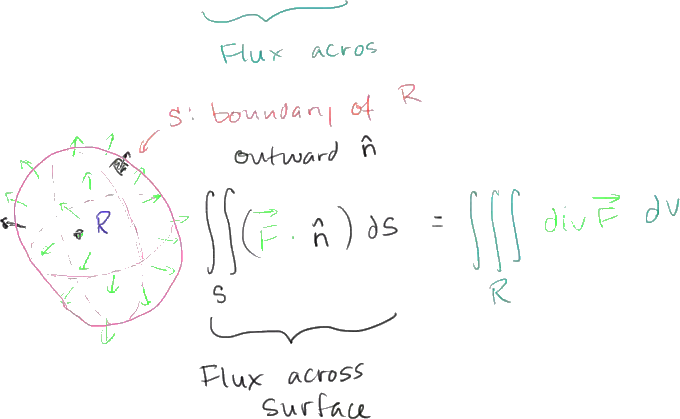 Flux acros
S: boundary of R
outward n̂
R
∬_S (F⃗ · n̂) dS = ∭_R div F⃗ dV
Flux across
surface